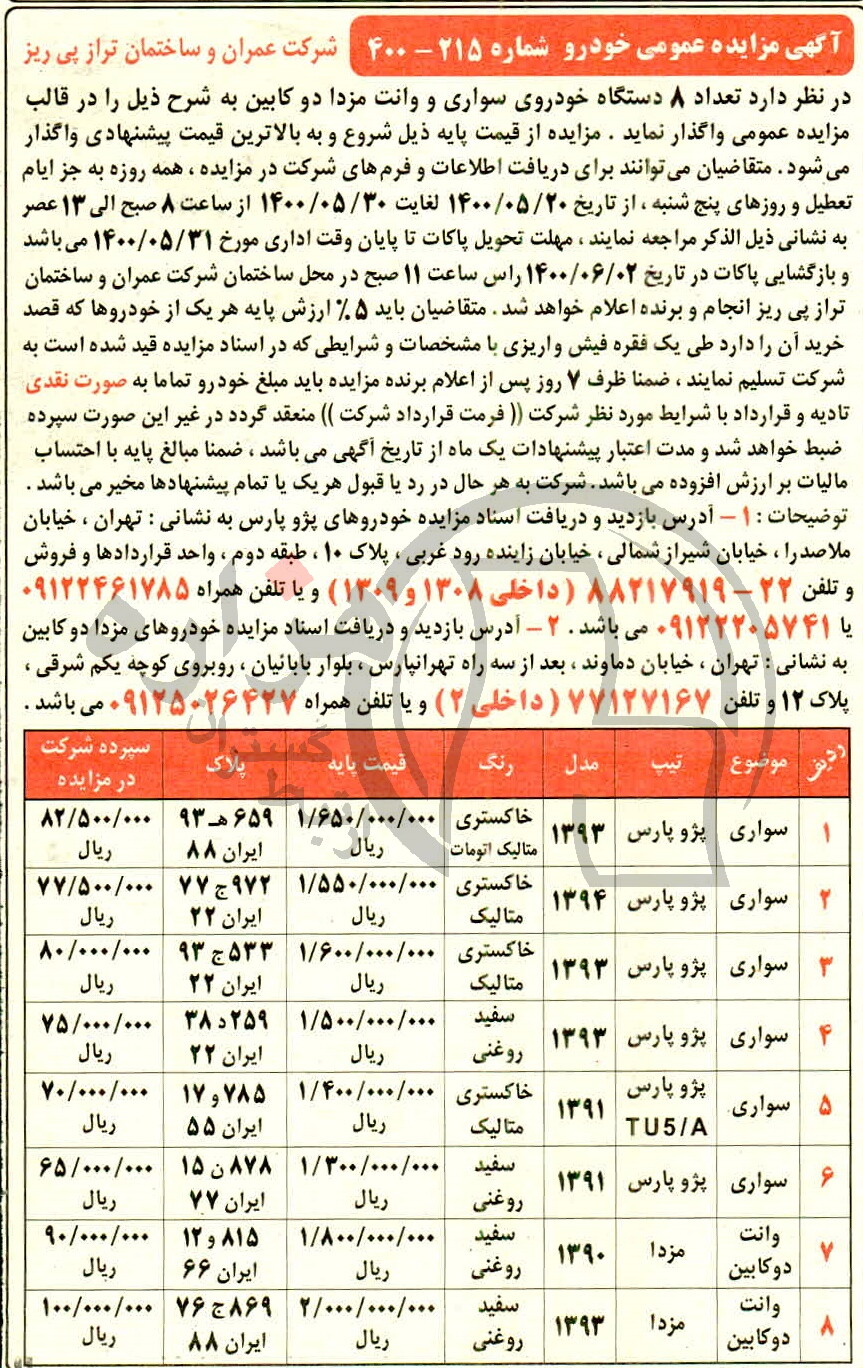 آگهی مزایده عمومی خودرو شماره ۲۱۵ – ۴۰۰ شرکت عمران و ساختمان تراز پی ریز
در نظر دارد تعداد ۸ دستگاه خودروی سواری و وانت مزدا دو کابین به شرح ذیل را در قالب
مزایده عمومی واگذار نماید . مزایده از قیمت پایه ذیل شروع و به بالاترین قیمت پیشنهادی واگذار
می شود . متقاضیان می‌توانند برای دریافت اطلاعات و فرم‌های شرکت در مزایده ، همه روزه به جز ایام
تعطیل و روزهای پنج شنبه ، از تاریخ ۱۴۰۰/۰۵/۲۰ لغایت ۱۴۰۰/۰۵/۳۰ از ساعت ۸ صبح الی ۱۳ عصر
به نشانی ذیل الذکر مراجعه نمایند ، مهلت تحویل پاکات تا پایان وقت اداری مورخ ۱۴۰۰/۰۵/۳۱ می باشد
و بازگشایی پاکات در تاریخ ۱۴۰۰/۰۶/۰۲ راس ساعت ۱۱ صبح در محل ساختمان شرکت عمران و ساختمان
تراز پی ریز انجام و برنده اعلام خواهد شد . متقاضیان باید ۵٪ ارزش پایه هر یک از خودروها که قصد
خرید آن را دارد طی یک فقره فیش واریزی با مشخصات و شرایطی که در اسناد مزایده قید شده است به
شرکت تسلیم نمایند ، ضمنا ظرف ۷ روز پس از اعلام برنده مزایده باید مبلغ خودرو تماما به صورت نقدی
تادیه و قرارداد با شرایط مورد نظر شرکت (( فرمت قرارداد شرکت )) منعقد گردد در غیر این صورت سپرده
ضبط خواهد شد و مدت اعتبار پیشنهادات یک ماه از تاریخ آگهی می باشد ، ضمنا مبالغ پایه با احتساب
مالیات بر ارزش افزوده می باشد . شرکت به هر حال در رد یا قبول هر یک یا تمام پیشنهادها مخیر می باشد .
توضیحات : ۱ – آدرس بازدید و دریافت اسناد مزایده خودروهای پژو پارس به نشانی : تهران ، خیابان
ملاصدرا ، خیابان شیراز شمالی ، خیابان زاینده رود غربی ، پلاک ۱۰ ، طبقه دوم ، واحد قراردادها و فروش
و تلفن ۲۲ – ۸۸۲۱۷۹۱۹ ( داخلی ۱۳۰۸ و ۱۳۰۹ ) و یا تلفن همراه ۰۹۱۲۲۴۶۱۷۸۵
یا ۰۹۱۲۲۲۰۵۷۴۱ می باشد . ۲ – آدرس بازدید و دریافت اسناد مزایده خودروهای مزدا دو کابین
به نشانی : تهران ، خیابان دماوند ، بعد از سه راه تهرانپارس ، بلوار بابائیان ، روبروی کوچه یکم شرقی ،
پلاک ۱۲ و تلفن ۷۷۱۲۷۱۶۷ ( داخلی ۲ ) و یا تلفن همراه ۰۹۱۲۵۰۲۶۴۲۷ می باشد .
ردیف موضوع تیپ مدل رنگ قیمت پایه پلاک سپرده شرکت در مزایده
۱ سواری پژو پارس ۱۳۹۳ خاکستری متالیک اتومات ۱/۶۵۰/۰۰۰/۰۰۰ ریال ۶۵۹ هـ ۹۳ ایران ۸۸ ۸۲/۵۰۰/۰۰۰ ریال
۲ سواری پژو پارس ۱۳۹۴ خاکستری متالیک ۱/۵۵۰/۰۰۰/۰۰۰ ریال ۹۷۲ ج ۷۷ ایران ۲۲ ۷۷/۵۰۰/۰۰۰ ریال
۳ سواری پژو پارس ۱۳۹۳ خاکستری متالیک ۱/۶۰۰/۰۰۰/۰۰۰ ریال ۵۳۳ ج ۹۳ ایران ۲۲ ۸۰/۰۰۰/۰۰۰ ریال
۴ سواری پژو پارس ۱۳۹۳ سفید روغنی ۱/۵۰۰/۰۰۰/۰۰۰ ریال ۲۵۹ د ۳۸ ایران ۲۲ ۷۵/۰۰۰/۰۰۰ ریال
۵ سواری پژو پارس TU5/A ۱۳۹۱ خاکستری متالیک ۱/۴۰۰/۰۰۰/۰۰۰ ریال ۷۸۵ و ۱۷ ایران ۵۵ ۷۰/۰۰۰/۰۰۰ ریال
۶ سواری پژو پارس ۱۳۹۱ سفید روغنی ۱/۳۰۰/۰۰۰/۰۰۰ ریال ۸۷۸ ن ۱۵ ایران ۷۷ ۶۵/۰۰۰/۰۰۰ ریال
۷ وانت دوکابین مزدا ۱۳۹۰ سفید روغنی ۱/۸۰۰/۰۰۰/۰۰۰ ریال ۸۱۵ و ۱۲ ایران ۶۶ ۹۰/۰۰۰/۰۰۰ ریال
۸ وانت دوکابین مزدا ۱۳۹۳ سفید روغنی ۲/۰۰۰/۰۰۰/۰۰۰ ریال ۸۶۹ ج ۷۶ ایران ۸۸ ۱۰۰/۰۰۰/۰۰۰ ریال